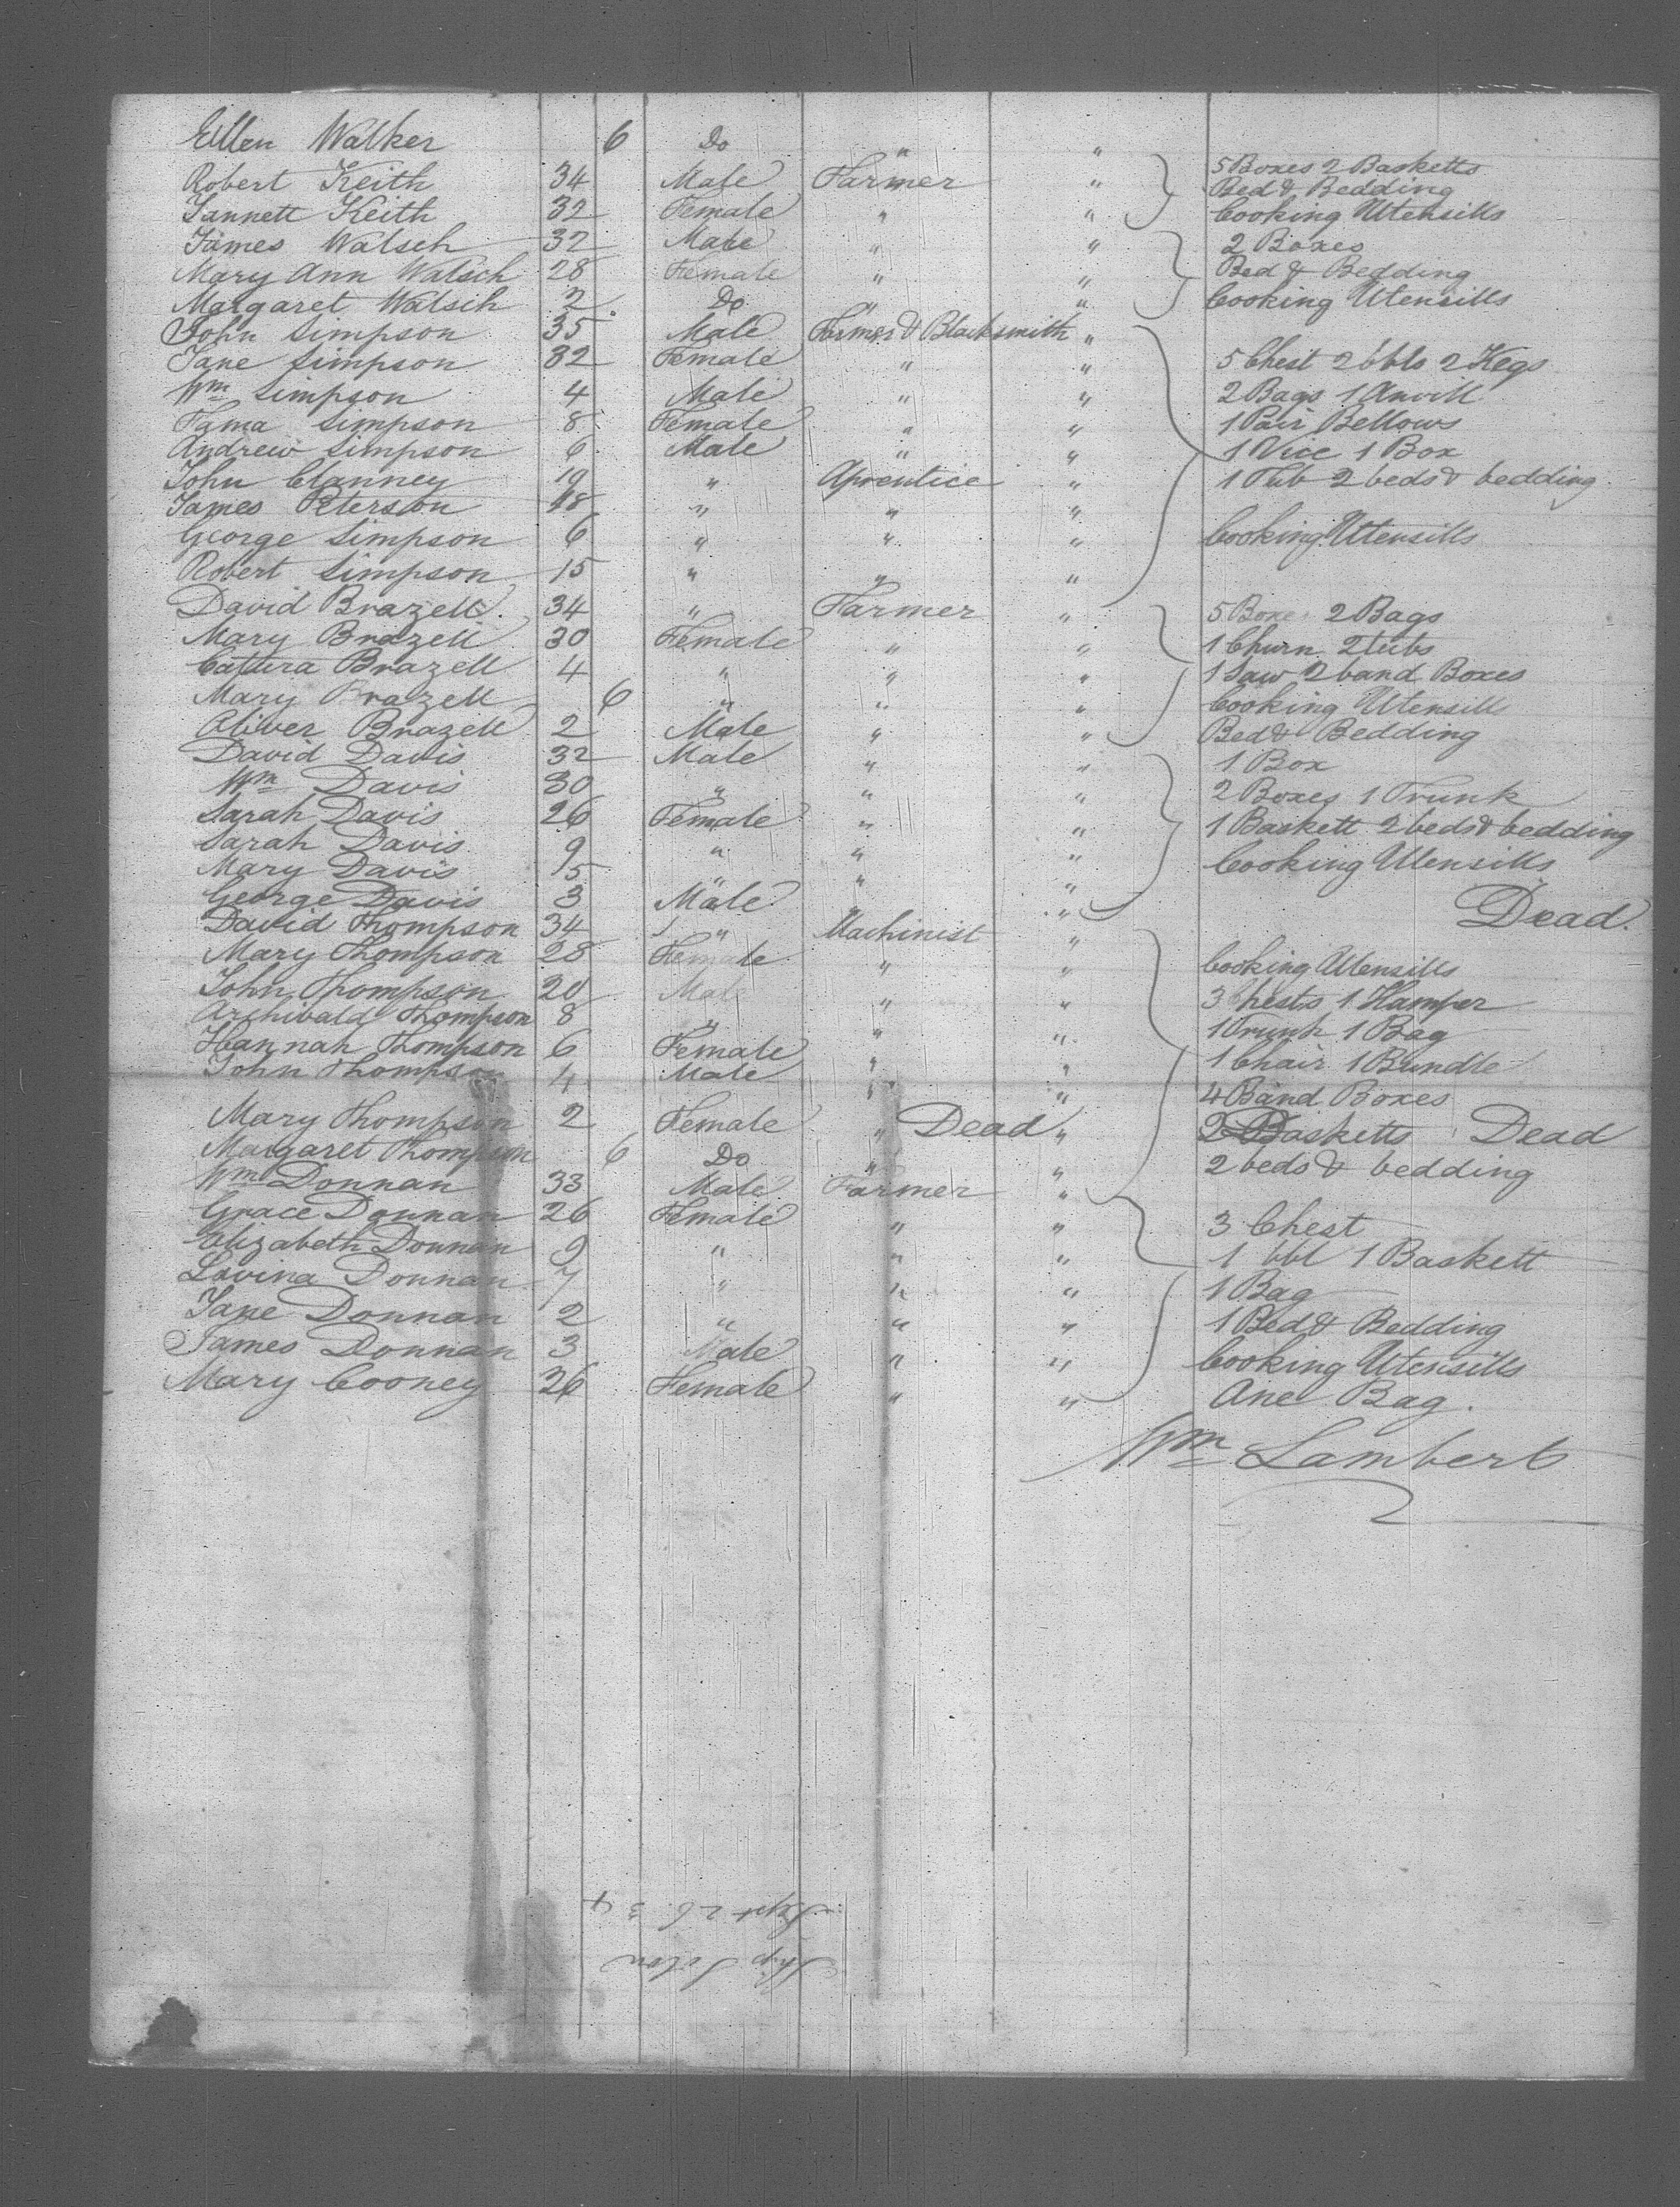 Ellen Walker 6 Do " "
Robert Keith 34 Male Farmer " 5 Boxes 2 Basketts
Bed & Bedding
Jannett Keith 32 Female " " Cooking Utensills
James Walsch 32 Male " " 2 Boxes
Mary Ann Walsch 28 Female " " Bed & Bedding
Margaret Walsch 2 Do " " Cooking Utensills
John Simpson 35 Male Farmer & Blacksmith "
Jane Simpson 32 Female " " 5 Chest 2 bbls 2 Kegs
Wm Simpson 4 Male " " 2 Bags 1 Anvill
Simpson 8 Female " " 1 Pair Bellows
Andrew Simpson 6 Male " " 1 Vice 1 Box
John Clanney 19 " Aprentice " 1 Tub 2 beds & bedding
James Peterson 18 " " "
George Simpson 6 " " " Cooking Utensills
Robert Simpson 15 " " "
David Brazell 34 " Farmer " 5 Boxes 2 Bags
Mary Brazell 30 Female " " 1 Churn 2 tubs
Brazell 4 " " " 1 Saw 2 band Boxes
Mary Brazell 6 " " " Cooking Utensills
Oliver Brazell 2 Male " " Bed & Bedding
David Davis 32 Male " " 1 Box
Wm Davis 30 " " " 2 Boxes 1 Trunk
Sarah Davis 26 Female " " 1 Baskett 2 beds & bedding
Sarah Davis 9 " " " Cooking Utensills
Mary Davis 15 " " "
George Davis 3 Male " " Dead
David Thompson 34 " Machinist "
Mary Thompson 28 Female " " Cooking Utensills
John Thompson 20 Male " " 3 Chests 1 Hamper
Archibald Thompson 8 " " " 1 Trunk 1 Bag
Hannah Thompson 6 Female " " 1 Chair 1 Bundle
John Thompson 4 Male " " 4 Band Boxes
Mary Thompson 2 Female " Dead " 2 Basketts Dead
Margaret Thompson 6 Do " " 2 beds & bedding
Wm Donnan 33 Male Farmer "
Grace Donnan 26 Female " " 3 Chest
Elizabeth Donnan 9 " " " 1 bbl 1 Baskett
Lovina Donnan 7 " " " 1 Bag
Jane Donnan 2 " " " 1 Bed & Bedding
James Donnan 3 Male " " Cooking Utensills
Mary Cooney 26 Female " " One Bag.
Wm Lambert
Ship
Sept 26 34